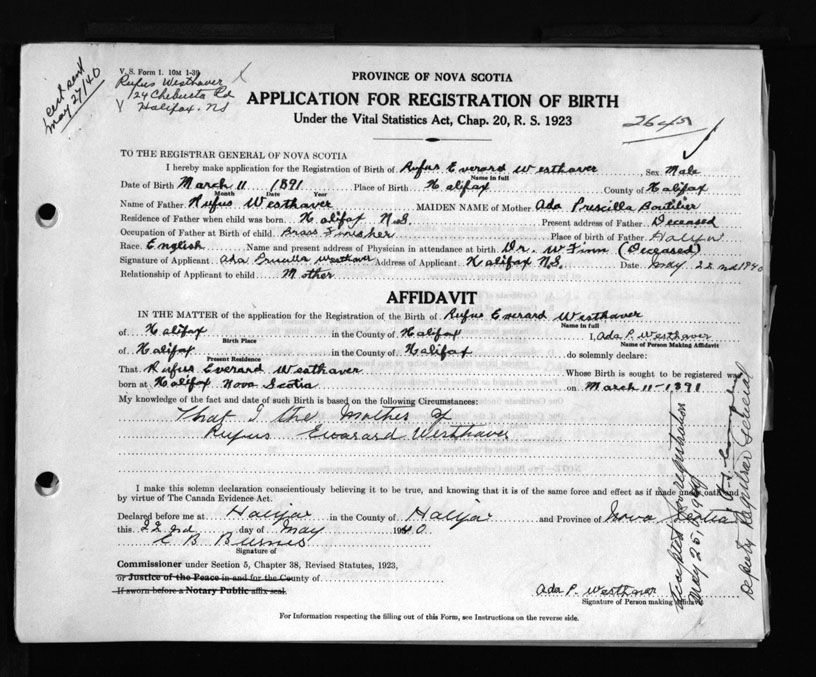 cert sent
May 27/40
V. S. Form 1. 10M 1-39
Rufus Westhaver
124 Chebucto Rd
Halifax. NS
PROVINCE OF NOVA SCOTIA
APPLICATION FOR REGISTRATION OF BIRTH
Under the Vital Statistics Act, Chap. 20, R. S. 1923
TO THE REGISTRAR GENERAL OF NOVA SCOTIA
I hereby make application for the Registration of Birth of Rufus Everard Westhaver Sex Male
Name in full
Date of Birth March 11 1891 Place of Birth Halifax County of Halifax
Month Date Year
Name of Father Rufus Westhaver MAIDEN NAME of Mother Ada Priscilla Boutilier
Residence of Father when child was born. Halifax N.S. Present address of Father Deceased
Occupation of Father at Birth of child. Brass Finisher Place of birth of Father Halifax
Race. English Name and present address of Physician in attendance at birth. Dr. W Finn (Deceased)
Signature of Applicant Ada Priscilla Westhaver Address of Applicant. Halifax N.S. Date May 22nd 1940
Relationship of Applicant to child Mother
AFFIDAVIT
IN THE MATTER of the application for the Registration of the Birth of Rufus Everard Westhaver
Name in full
of Halifax in the County of Halifax I, Ada P. Westhaver
Birth Place Name of Person Making Affidavit
of Halifax in the County of Halifax do solemnly declare:
Present Residence
That Rufus Everard Westhaver Whose Birth is sought to be registered was
born at Halifax Nova Scotia on March 11-1891
My knowledge of the fact and date of such Birth is based on the following Circumstances:
That I the Mother of
Rufus Ewarard Westhaver
I make this solemn declaration conscientiously believing it to be true, and knowing that it is of the same force and effect as if made under oath and
by virtue of The Canada Evidence Act.
Declared before me at Halifax in the County of Halifax and Province of Nova Scotia
this 22nd day of May 1940
E B Burns
Signature of
Commissioner under Section 5, Chapter 38, Revised Statutes, 1923,
or Justice of the Peace in and for the County of
If sworn before a Notary Public affix seal.
Ada P. Westhaver
Signature of Person making Affidavit
For Information respecting the filling out of this Form, see Instructions on the reverse side.
Accepted for registration
May 25, 1940
Deputy Registrar General